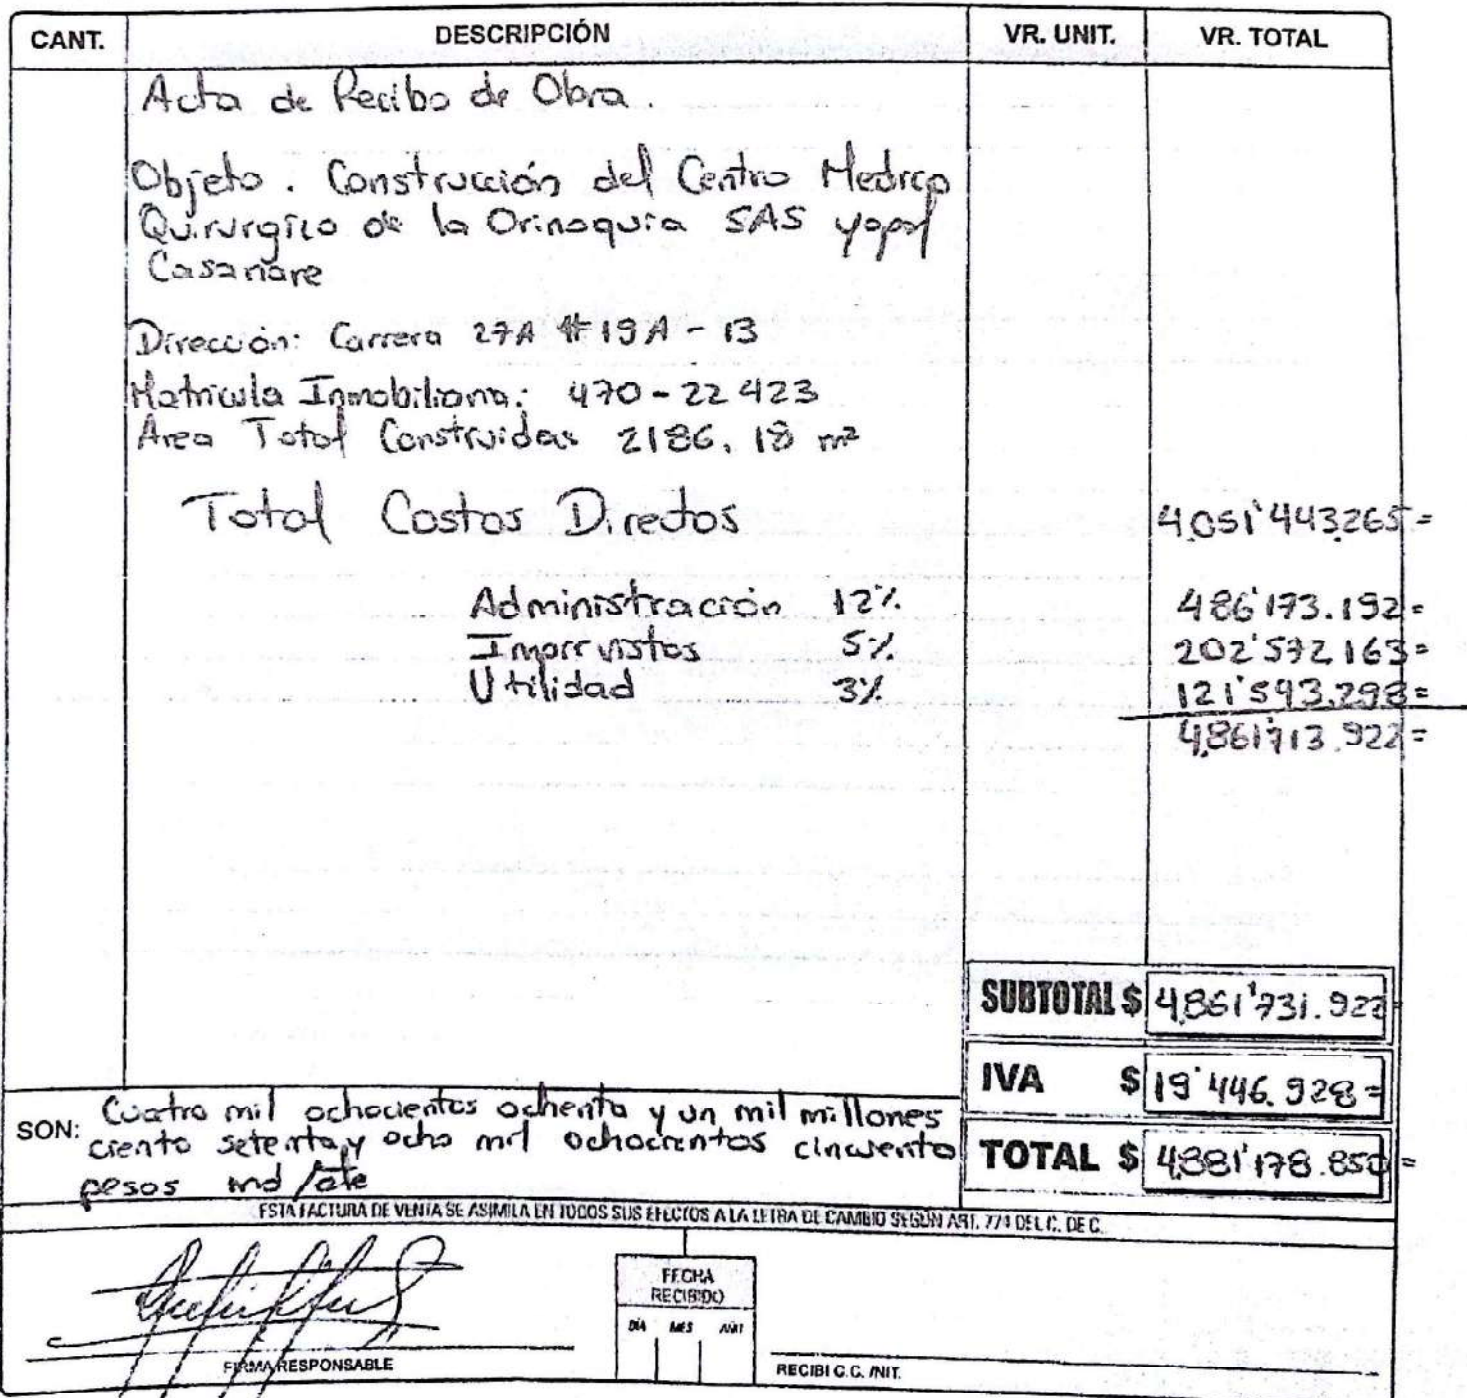 CANT. DESCRIPCIÓN VR. UNIT. VR. TOTAL
Acta de Recibo de Obra.
Objeto. Construcción del Centro Medico
Quirurgico de la Orinoquia SAS yopal
Casanare
Dirección: Carrera 27A # 19A - 13
Matricula Inmobiliaria: 470-22423
Area Total Construidas 2186.18 m²
Total Costos Directos 4,051'443,265=
Administración 12% 486'173.192=
Imprevistos 5% 202'572 163=
Utilidad 3% 121'543.298=
4,861'713.922=
SUBTOTAL $ 4,861'731.922=
IVA $ 19'446.928=
SON: Cuatro mil ochocientos ochenta y un mil millones
ciento setenta y ocho mil ochocientos cincuenta
pesos md/cte
TOTAL $ 4,881'178.850=
ESTA FACTURA DE VENTA SE ASIMILA EN TODOS SUS EFECTOS A LA LETRA DE CAMBIO SEGÚN ART. 774 DEL C. DE C.
FECHA
RECIBIDO
DÍA MES AÑO
FIRMA RESPONSABLE
RECIBI C.C. /NIT.